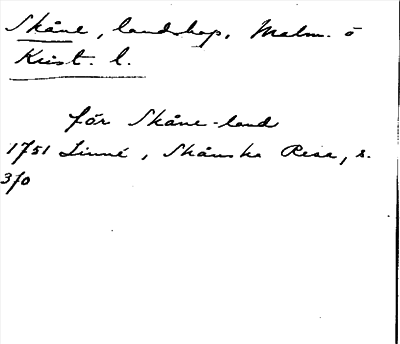 Skåne, landskap, Malm. o
Krist. l.
för Skåne-land
1751 Linné, Skånska Resa, s.
370